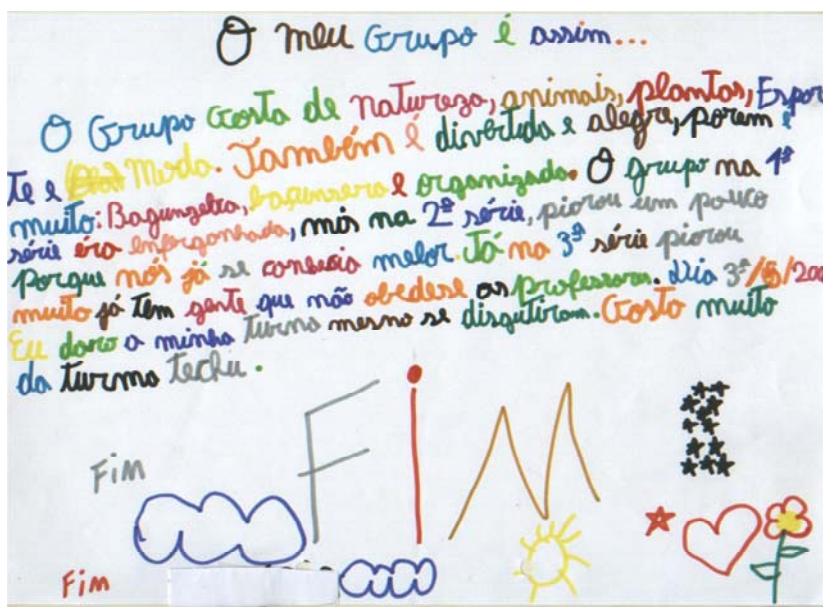 O meu Grupo é assim...
O Grupo Gosta de natureza, animais, plantas, Espor
te e Moda. Também é divertida e alegre, porem é
muito: Bagunzeira, baçunsera e organizada. O grupo na 1ª
série éra enforgonhada, mis na 2ª série, piorou um pouco
porque nós já se consecia melor. Já na 3ª série piorou
muito já têm gente que não obedese as professoras. Dia 3ª/6/200
Eu doro a minha turma mesno se disgutiram. Gosto muito
da turma techu.
FiM
FiM
Fim